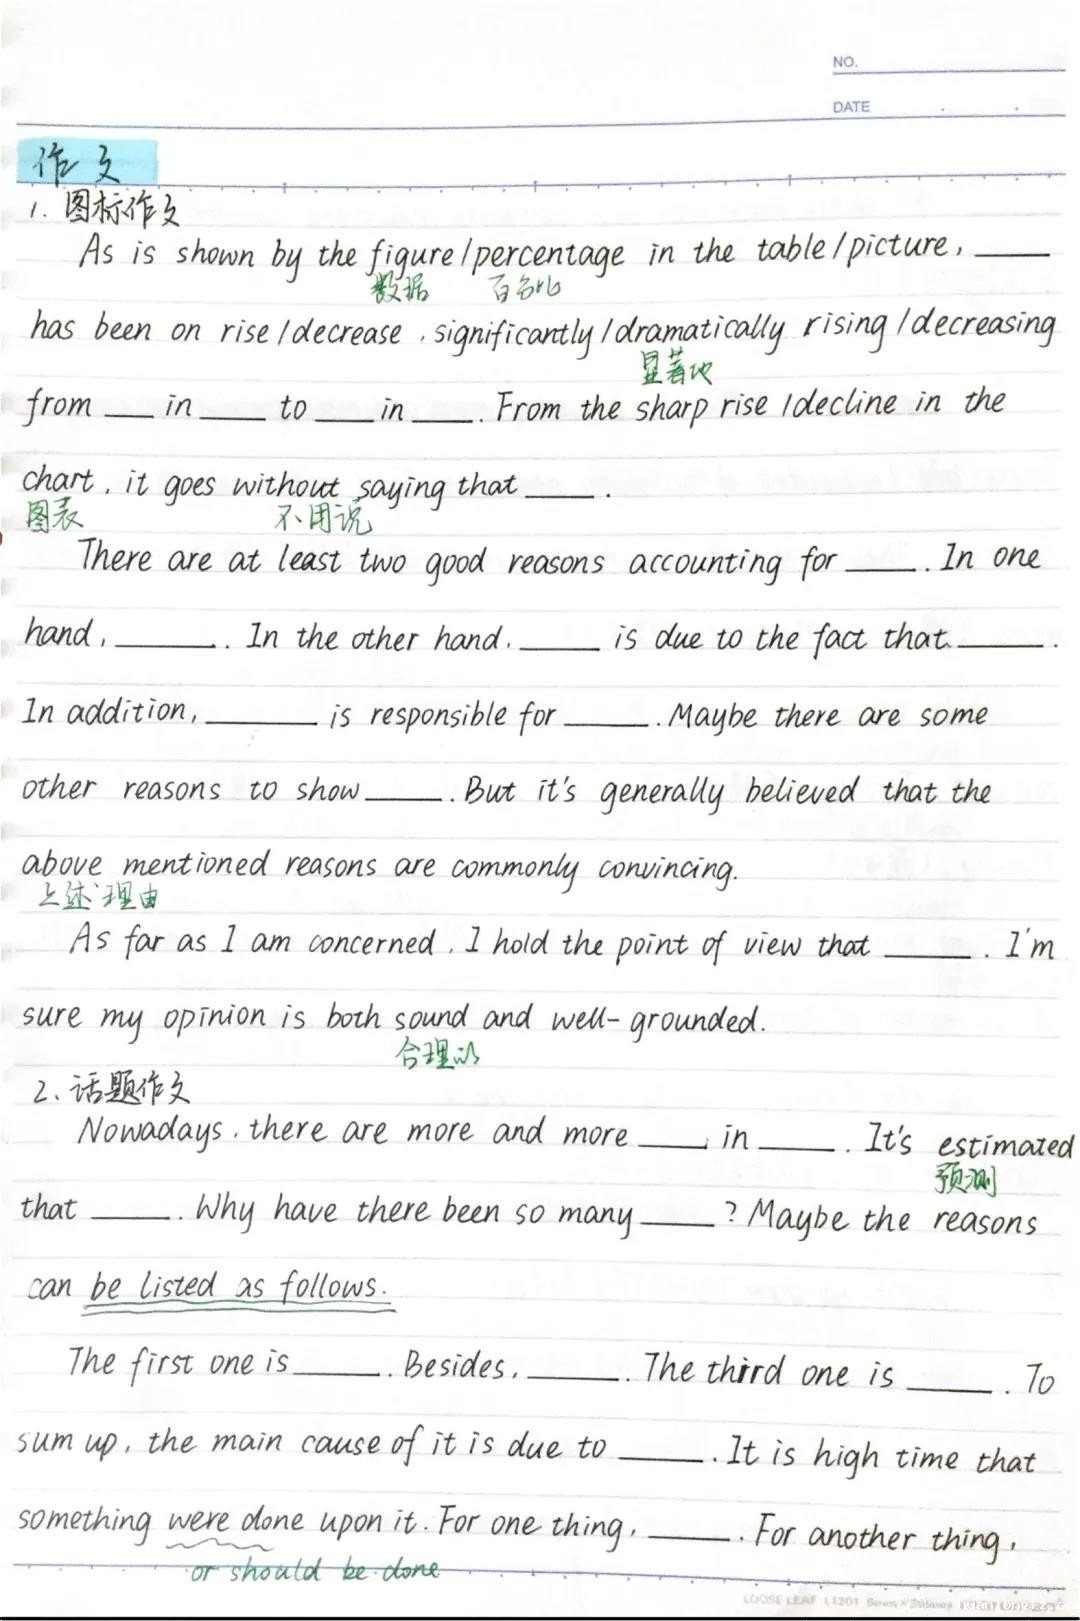 NO.
DATE
作文
1. 图标作文
As is shown by the figure/percentage in the table/picture, ____
数据 百分比
has been on rise/decrease, significantly/dramatically rising/decreasing
显著地
from ___ in ____ to ____ in ____. From the sharp rise/decline in the
chart, it goes without saying that ____.
图表 不用说
There are at least two good reasons accounting for ____. In one
hand, ____. In the other hand, ____ is due to the fact that ____.
In addition, ____ is responsible for ____. Maybe there are some
other reasons to show ____. But it's generally believed that the
above mentioned reasons are commonly convincing.
上述理由
As far as I am concerned, I hold the point of view that ____. I'm
sure my opinion is both sound and well-grounded.
合理的
2. 话题作文
Nowadays, there are more and more ____ in ____. It's estimated
预测
that ____. Why have there been so many ____? Maybe the reasons
can be listed as follows.
The first one is ____. Besides, ____. The third one is ____. To
sum up, the main cause of it is due to ____. It is high time that
something were done upon it. For one thing, ____. For another thing,
or should be done
LOOSE LEAF L1201